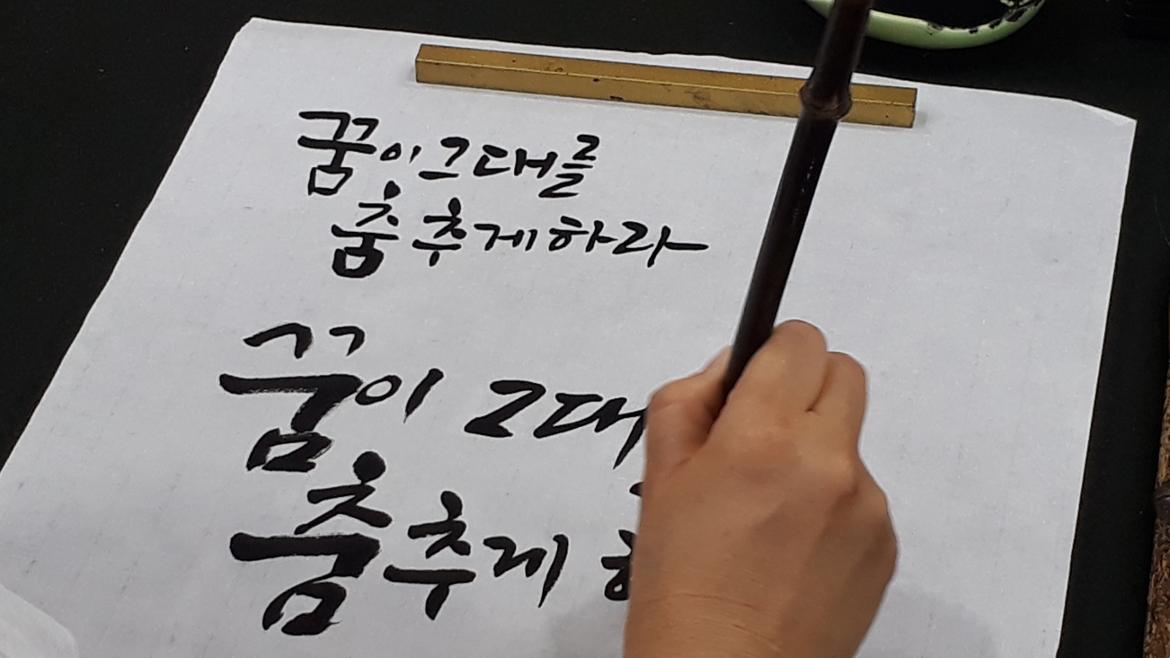 꿈이 그대를
춤추게 하라
꿈이 그대
춤추게